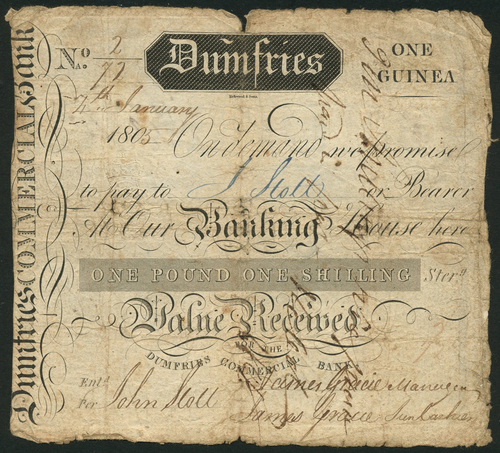 Dumfries COMMERCIAL Bank
No. 2
77
Dumfries
ONE
GUINEA
7th January
1805 On demand we promise
to pay to J Stott or Bearer
At Our Banking House here
ONE POUND ONE SHILLING Sterg.
Value Received
FOR THE
DUMFRIES COMMERCIAL BANK
Entd. James Gracie Manager
Per John Stott James Gracie